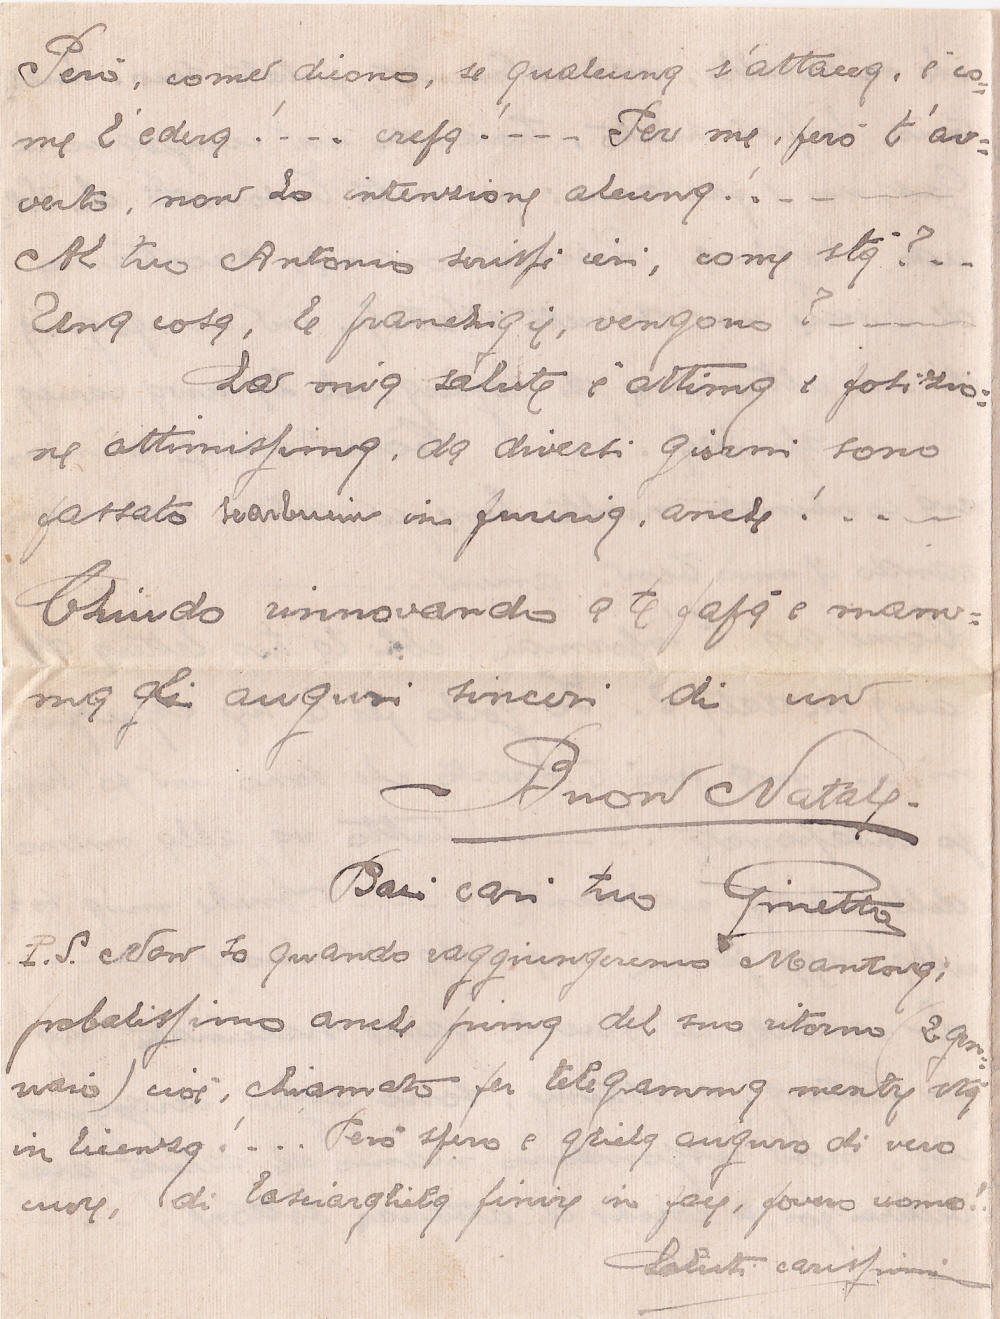 Però, come dicono, se qualcuna s'attacca, è co=
me l'edera!---- crepa!---- Per me, però t'av=
verto, non ho intenzione alcuna!.---
Al tuo Antonio scrissi ieri, come sta?---
Una cosa, le franchigie, vengono?----
La mia salute è ottima e posizio=
ne ottimissima, da diversi giorni sono
passato in fureria, anche!....
Chiudo rinnovando a te papà e mam=
ma gli auguri sinceri di un
Buon Natale.
Baci cari tuo Ginetto
P.S. Non so quando raggiungeremo Mantova;
probalissimo anche prima del suo ritorno (2 gen=
naio) cioè, chiamato per telegramma mentre sta
in licenza!.... Però spero e glielo auguro di vero
cuore, di lasciargliela finire in pace, povero uomo!!
Saluti carissimi